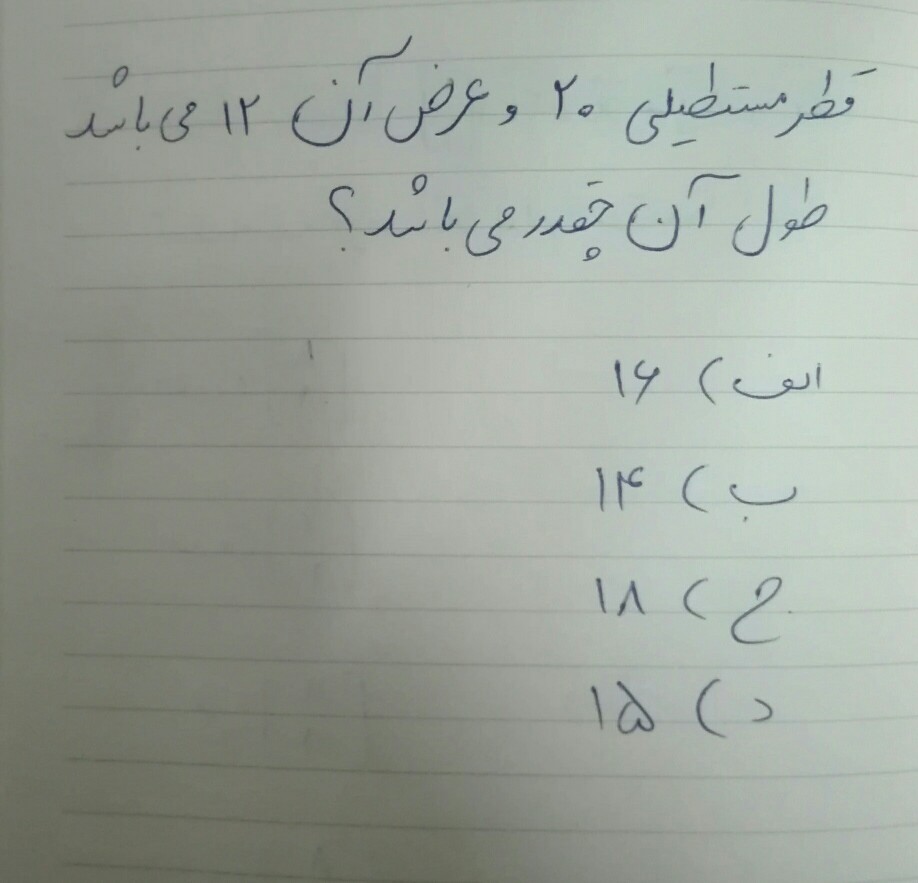 قطر مستطیلی ۲۰ و عرض آن ۱۲ می باشد
طول آن چقدر می باشد؟
الف) ۱۶
ب) ۱۴
ج) ۱۸
د) ۱۵